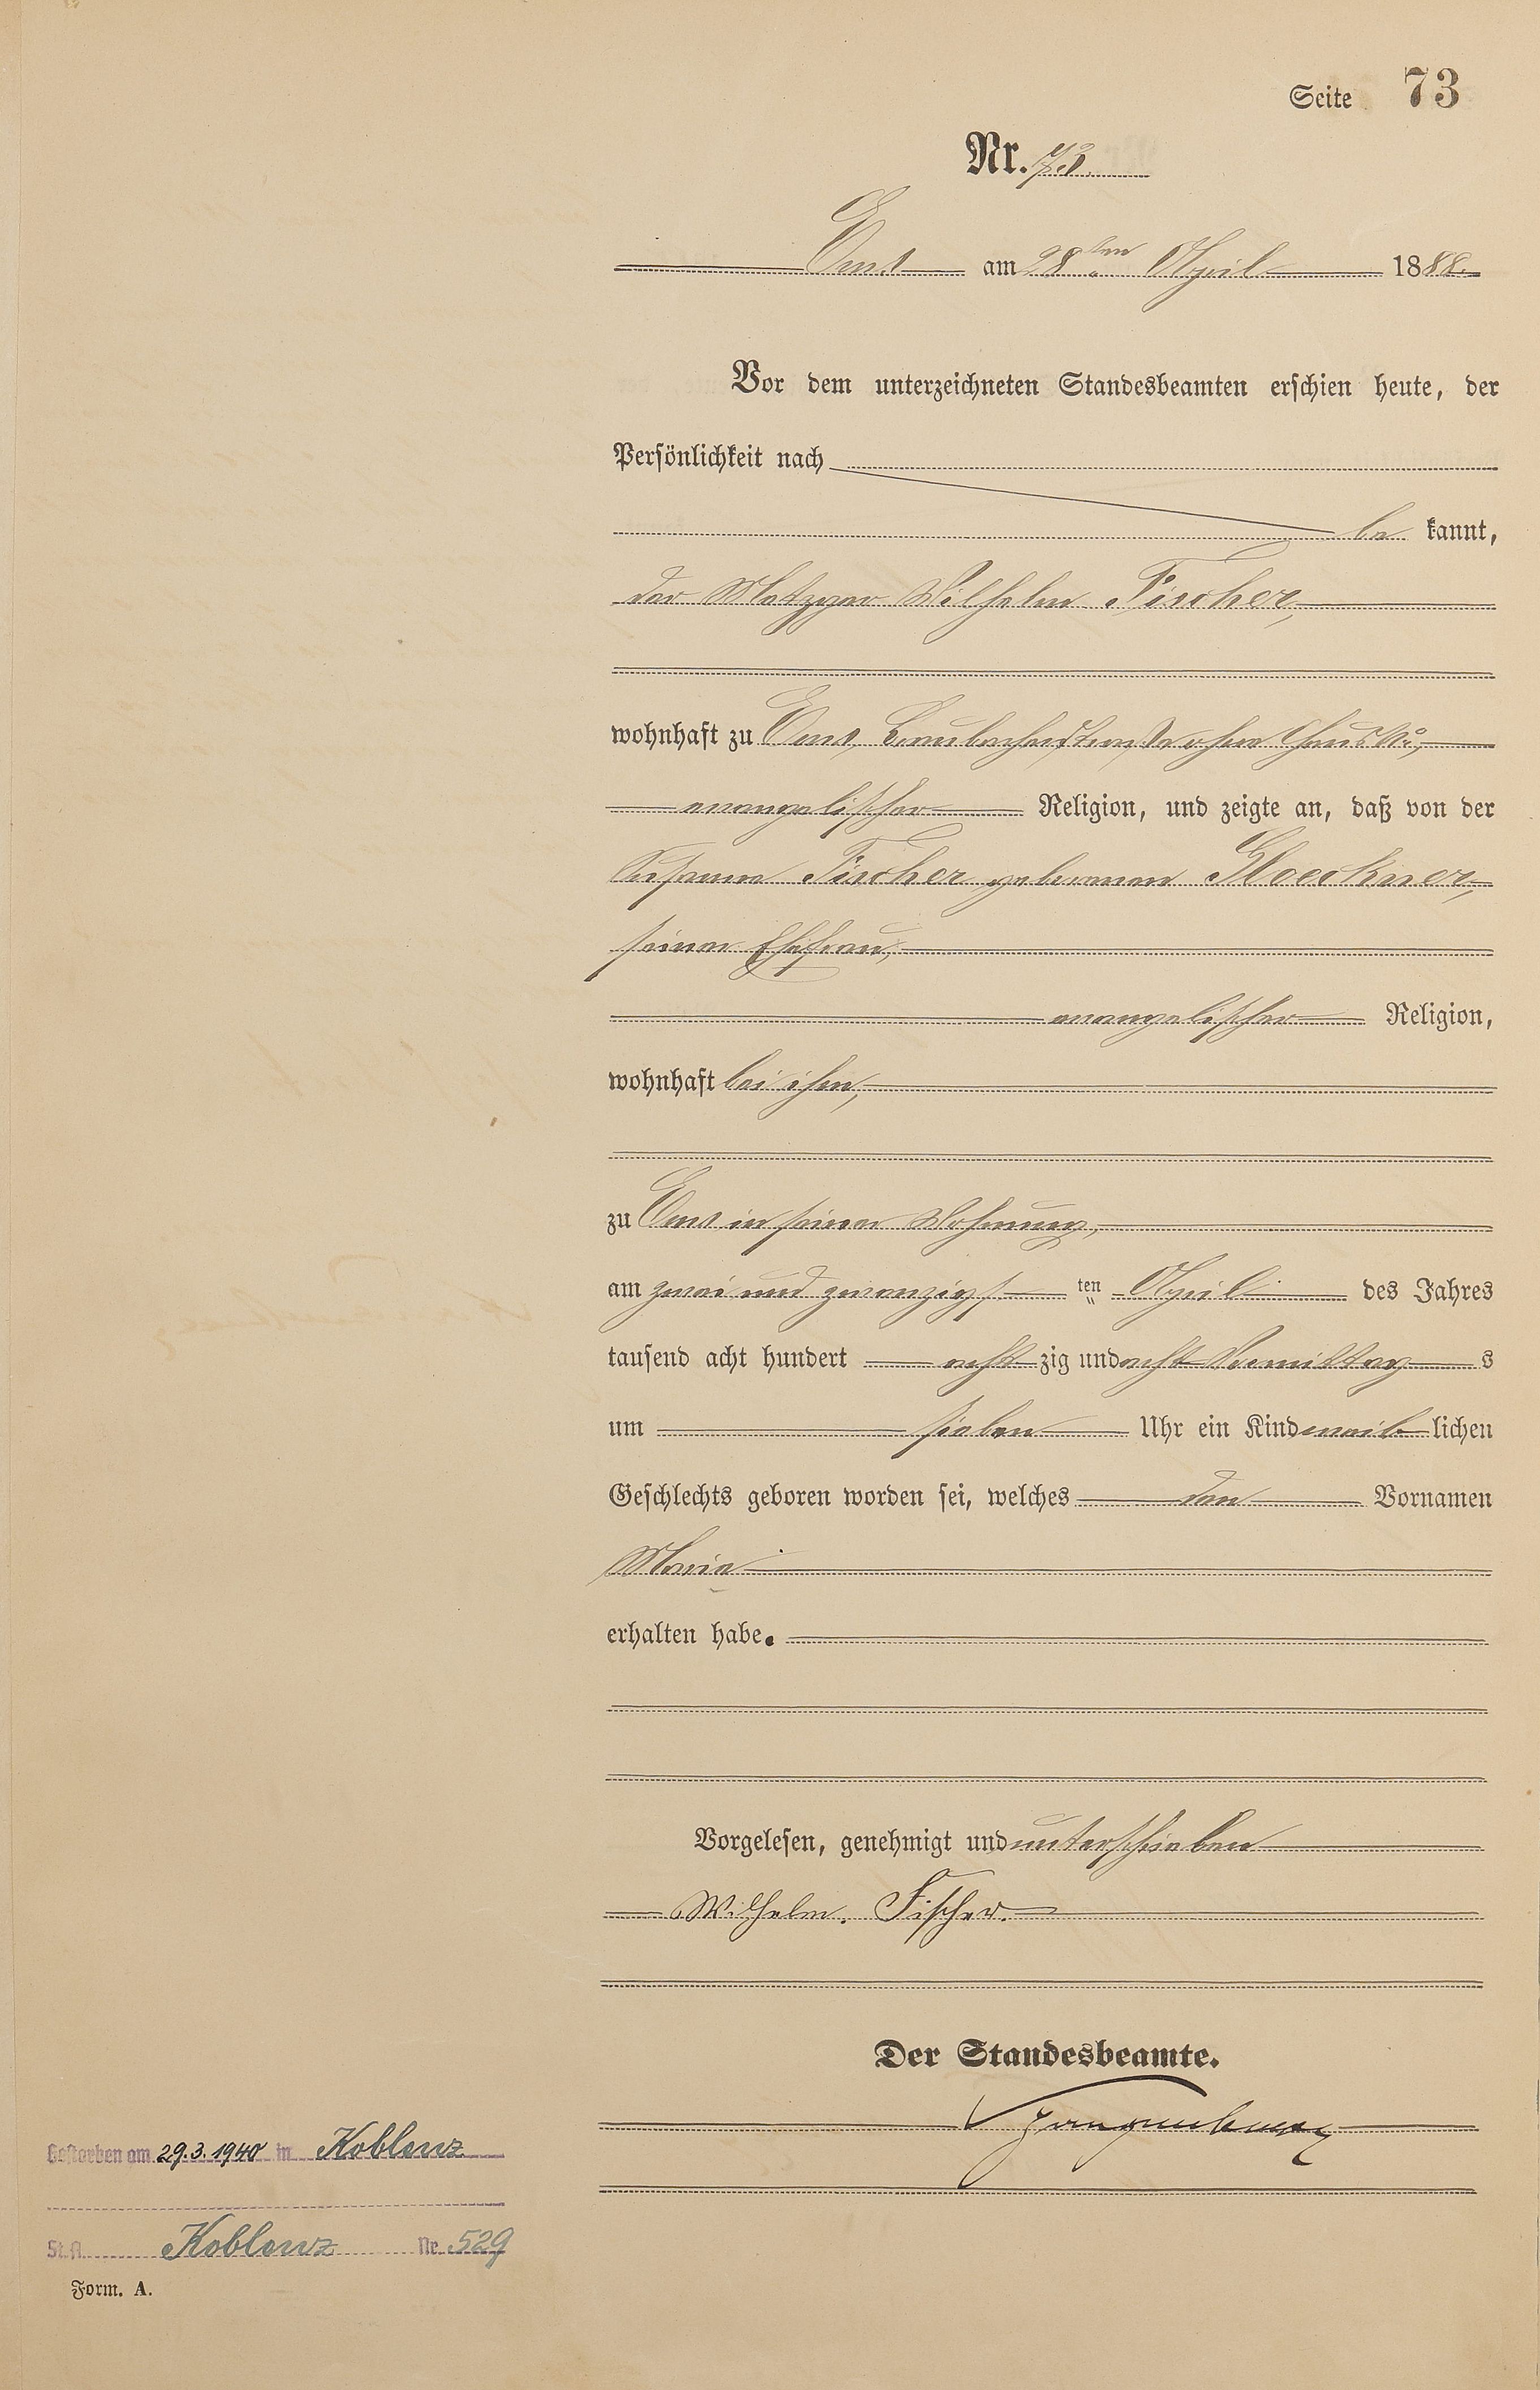 Seite 73
Nr. 73.
Ems am 28ten April 1888.
Vor dem unterzeichneten Standesbeamten erschien heute, der
Persönlichkeit nach
be kannt,
der Metzger Wilhelm Fischer,
wohnhaft zu Ems, Braubacherstraße ohne Haus No,
evangelischer Religion, und zeigte an, daß von der
Susanna Fischer geborenen Gloeckner,
seiner Ehefrau,
evangelischer Religion,
wohnhaft bei ihm,
zu Ems in seiner Wohnung,
am zwei und zwanzigs ten April des Jahres
tausend acht hundert acht zig und acht Vormittag s
um sieben Uhr ein Kind weib lichen
Geschlechts geboren worden sei, welches den Vornamen
Maria
erhalten habe.
Vorgelesen, genehmigt und unterschrieben
Wilhelm. Fischer.
Der Standesbeamte.
Gestorben am 29.3.1940 in Koblenz
St.A. Koblenz Nr. 529
Form. A.